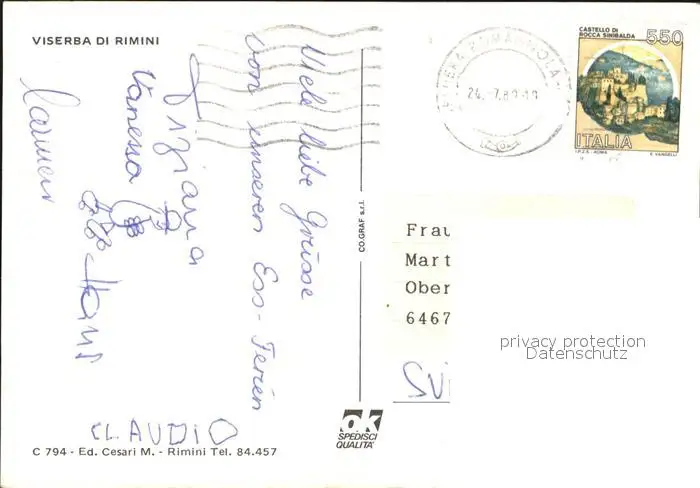 VISERBA DI RIMINI
Viele liebe Grüsse
von unseren Ess-Ferien
Tiziana
Vanessa
Carmen
Hans
CLAUDIO
C 794 - Ed. Cesari M. - Rimini Tel. 84.457
CO.GRAF s.r.l.
ok
SPEDISCI
QUALITA'
24. 7.89-19
CASTELLO DI
ROCCA SINIBALDA
550
ITALIA
I.P.Z.S. - ROMA
E. VANGELLI
Frau
Mart
Ober
6467
privacy protection
Datenschutz